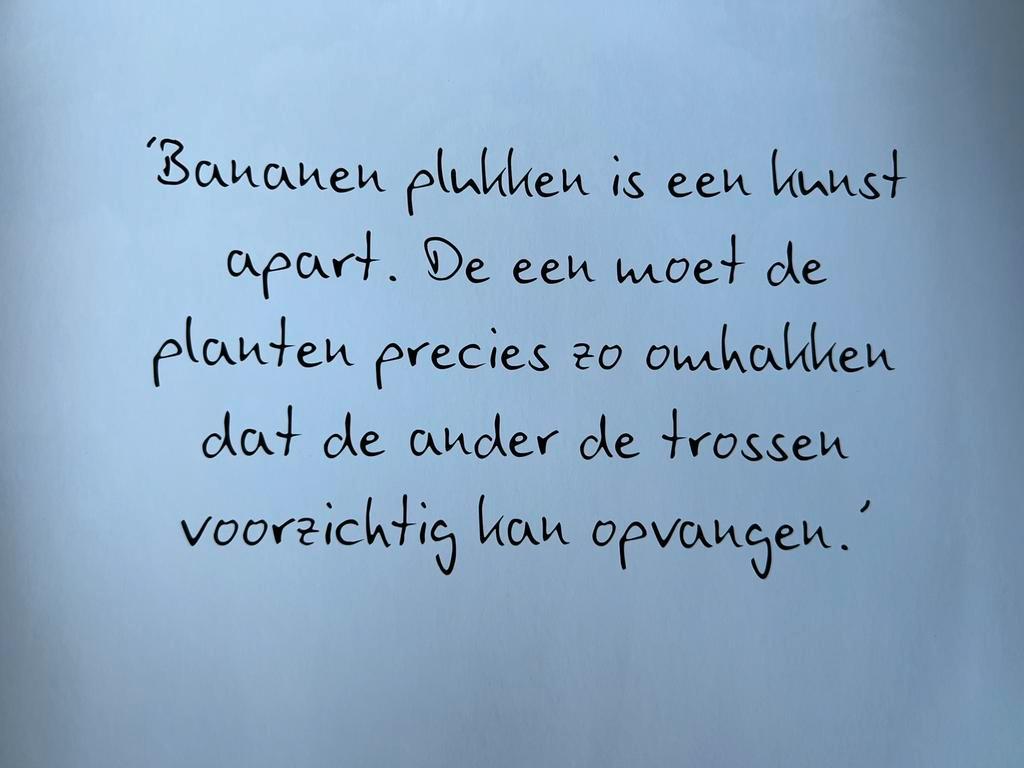 'Bananen plukken is een kunst
apart. De een moet de
planten precies zo omhakken
dat de ander de trossen
voorzichtig kan opvangen.'